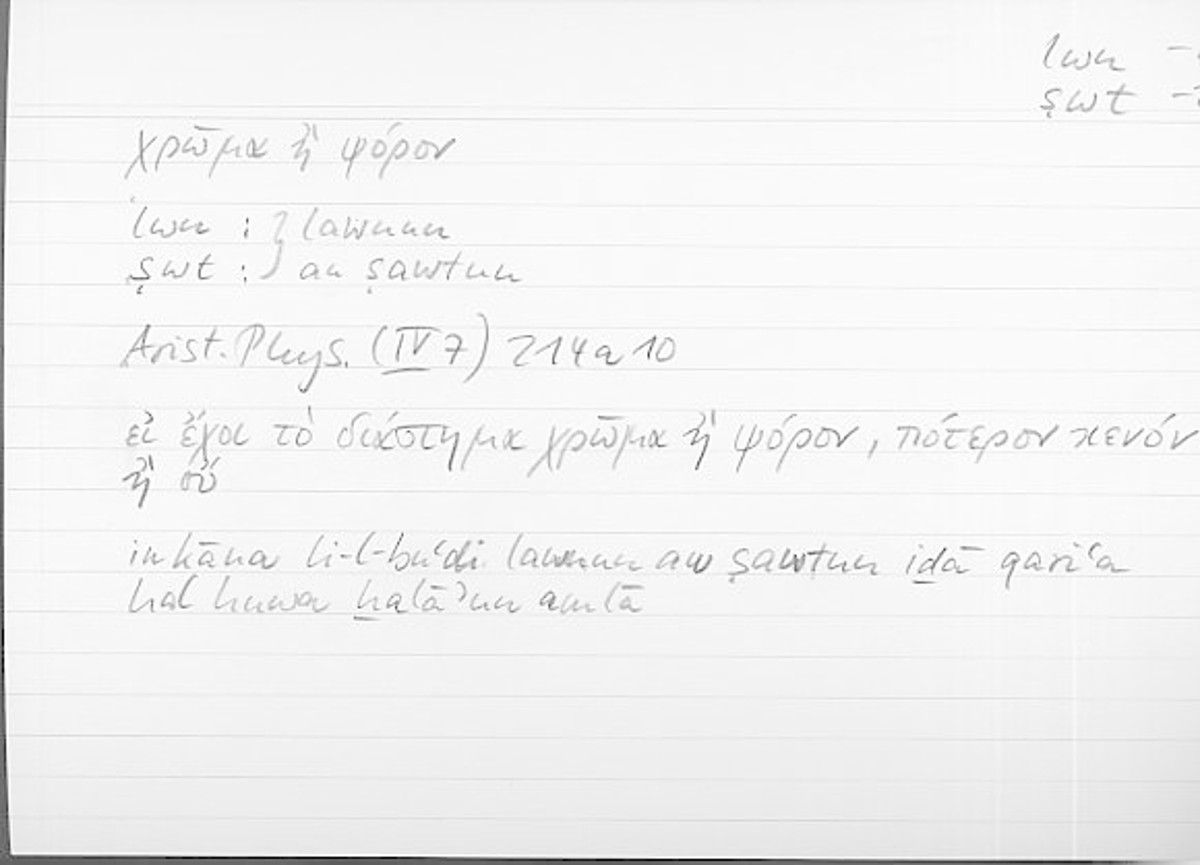 lwn –
ṣwt –
χρῶμα ἢ ψόφον
lwn : } lawnun
ṣwt : } au ṣawtun
Arist. Phys. (IV 7) 214 a 10
εἰ ἔχοι τὸ διάστημα χρῶμα ἢ ψόφον, πότερον κενόν
ἢ οὔ
in kāna li-l-buʿdi lawnun aw ṣawtun iḏā qariʿa
hal huwa ḫalāʾun am lā